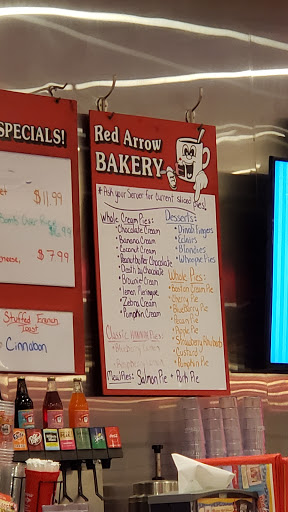 SPECIALS!
$11.99
$7.99
Stuffed French
Toast
Cinnabon
Red Arrow
BAKERY
* Ask your Server for current sliced Pies!
Whole Cream Pies:
Chocolate Cream
Banana Cream
Coconut Cream
Peanutbutter Chocolate
Death by Chocolate
Brownie Cream
Lemon Meringue
Zebra Cream
Pumpkin Cream
Desserts:
• Dinah Fingers
• Eclairs
• Blondies
• Whoopie Pies
Whole Pies:
• Boston Cream Pie
• Cherry Pie
• Blueberry Pie
• Pecan Pie
• Apple Pie
• Strawberry Rhubarb
• Custard
• Pumpkin Pie
Meat Pies: Salmon Pie • Pork Pie